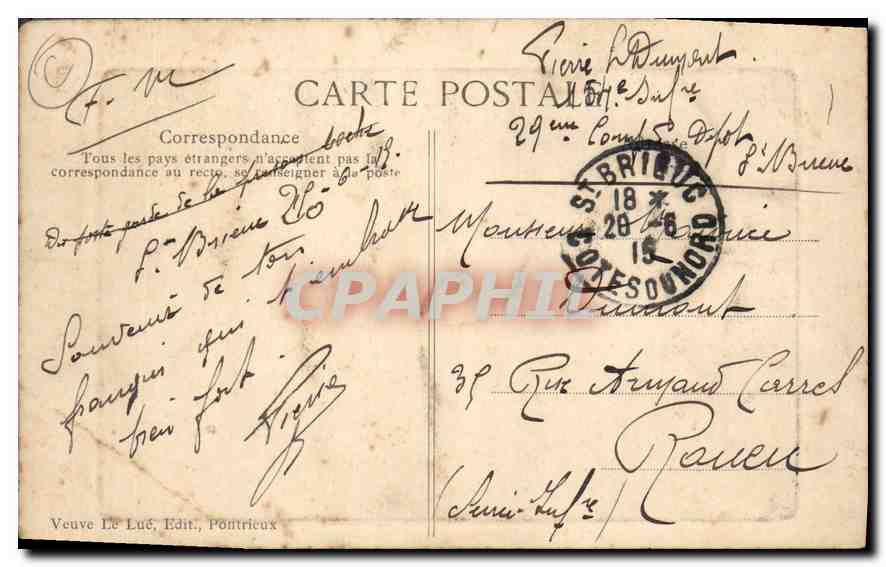 F. M
Pierre Dumont
154e Infre
29eme Comp Depot
St Brieuc
CARTE POSTALE
Correspondance
Tous les pays étrangers n'acceptent pas la
correspondance au recto, se renseigner à la poste
Du poste garde de la
St Brieuc 20-6-15
Souvenir de ton
françois qui t'embrasse
bien fort.
Pierre
ST BRIEUC
18 *
20 -6
15
COTES DU NORD
Monsieur Maurice
Dumont
35 Rue Armand Carrel
Rouen
(Seine-Infre)
CPAPHIL
Veuve Le Lué, Edit., Pontrieux